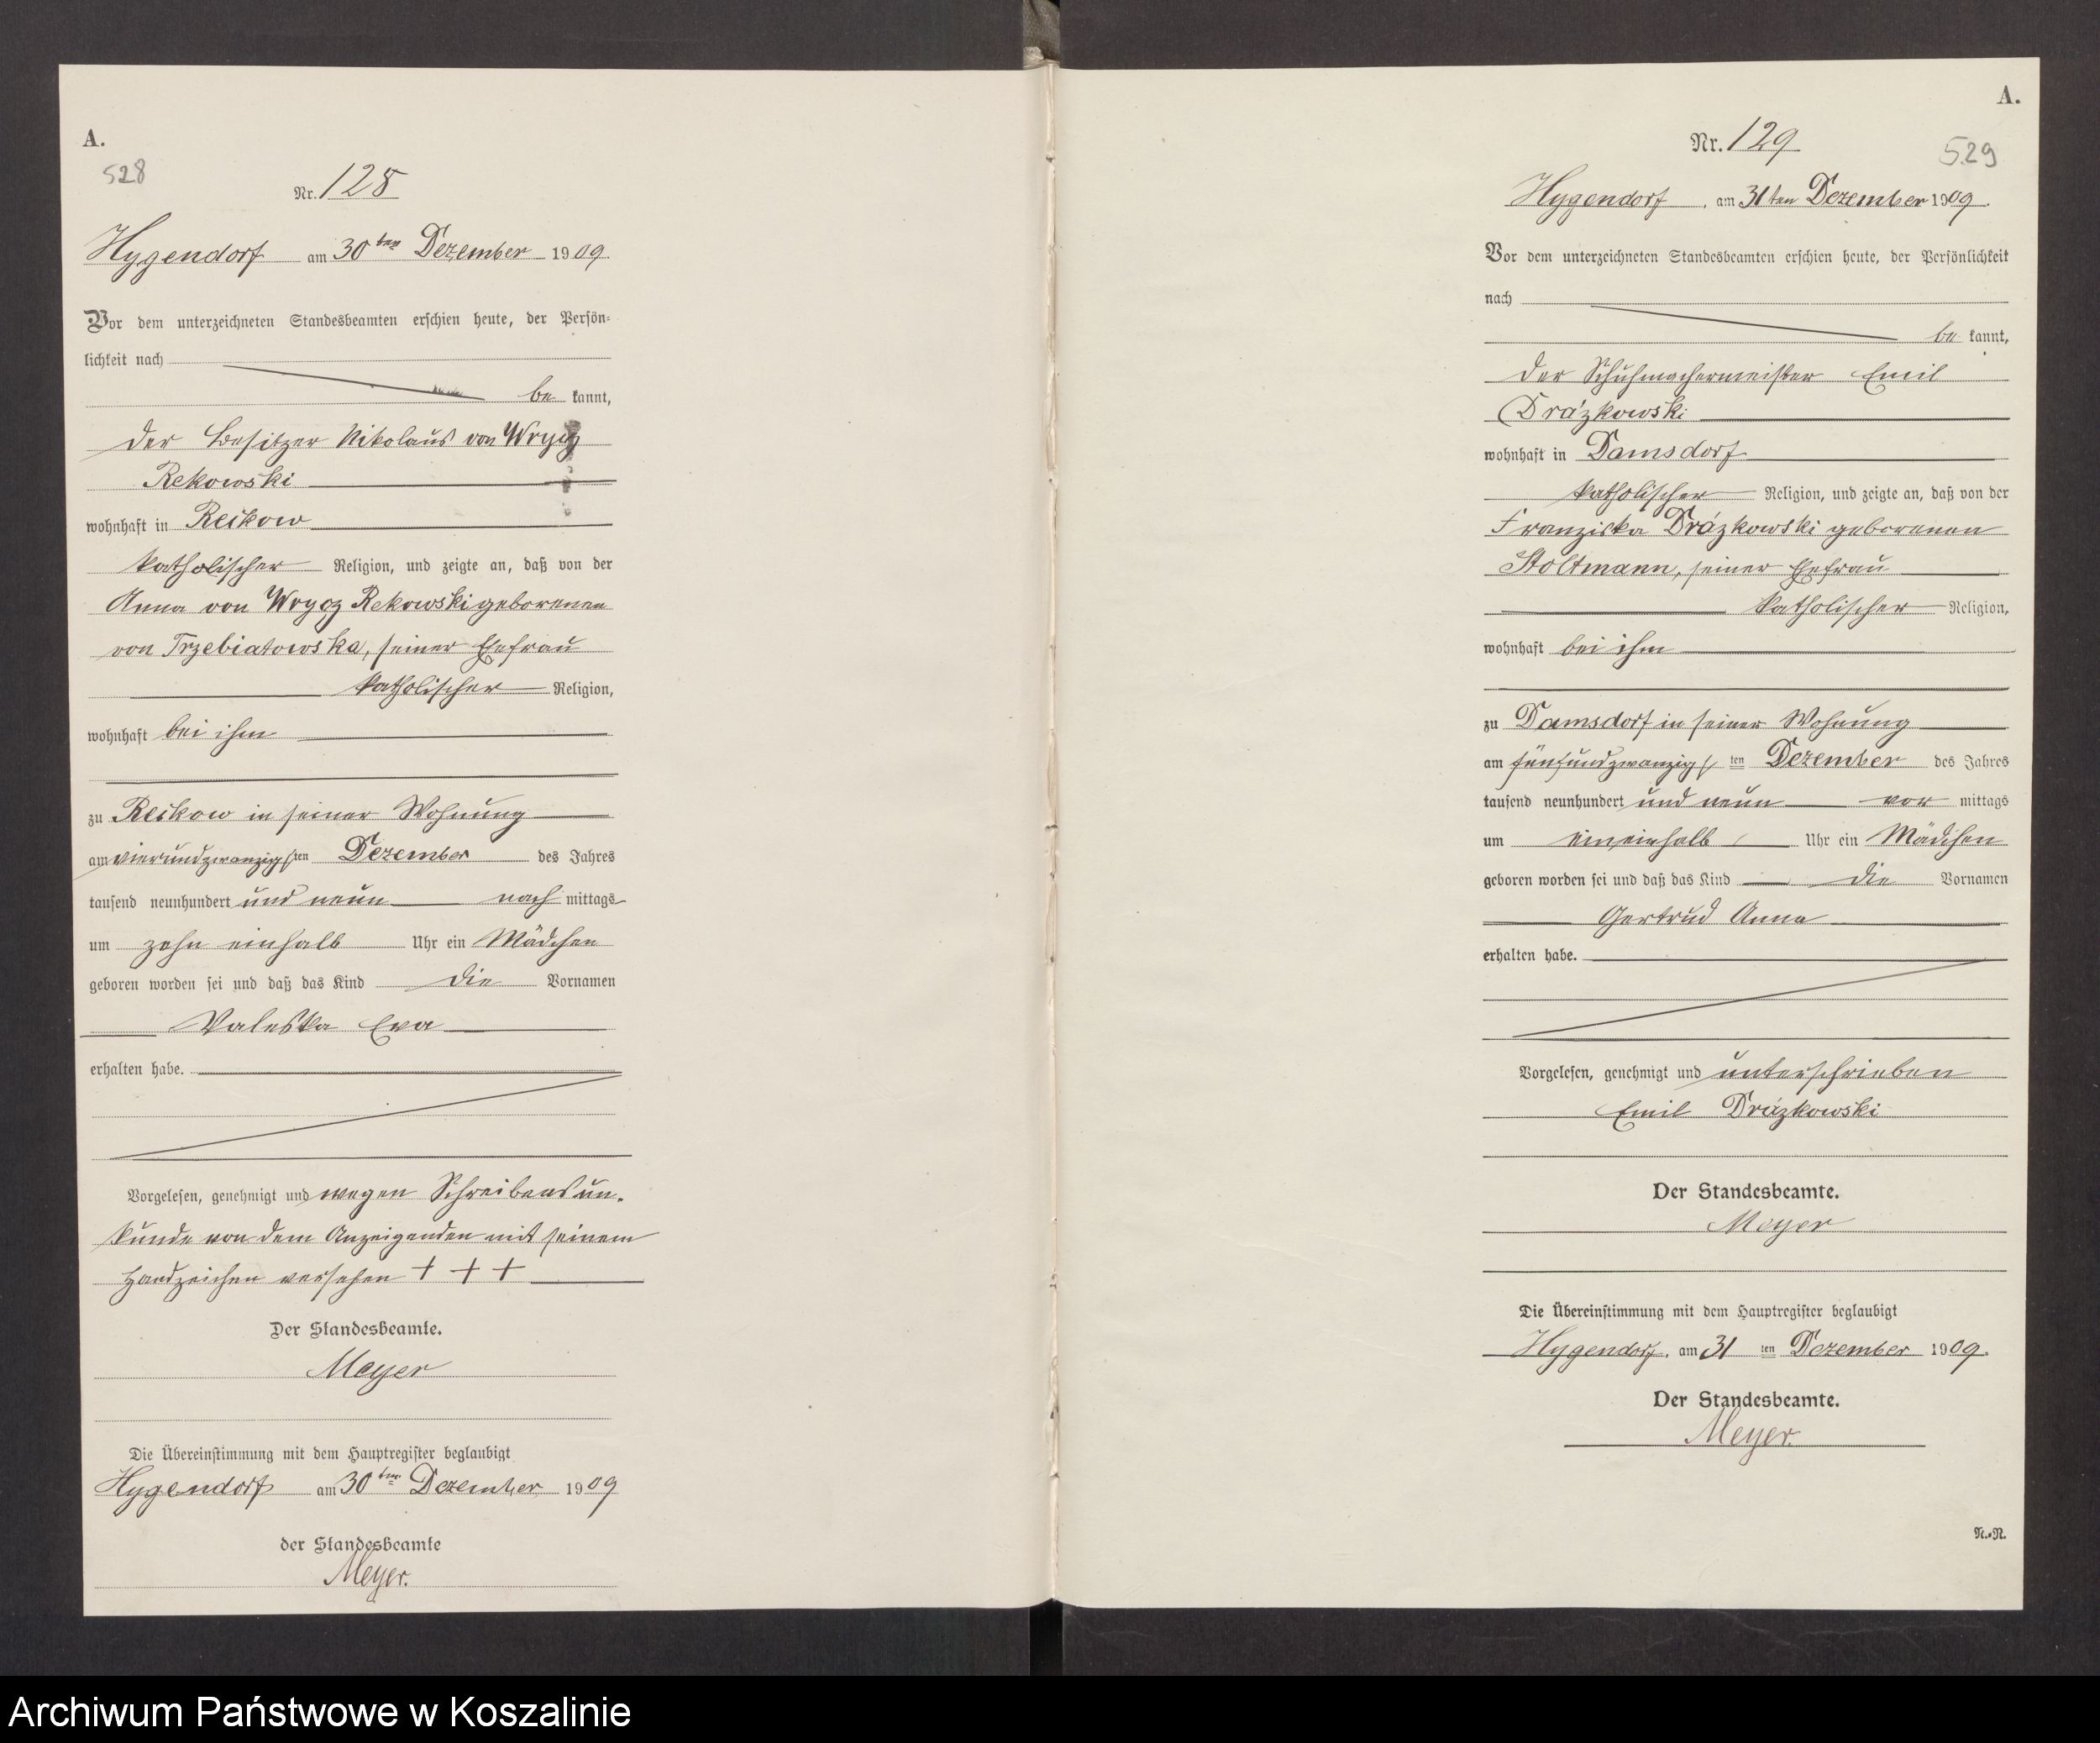 A.
528
Nr. 128
Hygendorf am 30ten Dezember 1909.
Vor dem unterzeichneten Standesbeamten erschien heute, der Persön-
lichkeit nach
be kannt,
der Besitzer Nikolaus von Wrycz
Rekowski
wohnhaft in Reckow
katholischer Religion, und zeigte an, daß von der
Anna von Wrycz Rekowski geborenen
von Trzebiatowska, seiner Ehefrau
katholischer Religion,
wohnhaft bei ihm
zu Reckow in seiner Wohnung
am vierundzwanzigsten Dezember des Jahres
tausend neunhundert und neun nach mittags
um zehn einhalb Uhr ein Mädchen
geboren worden sei und daß das Kind die Vornamen
Valeska Eva
erhalten habe.
Vorgelesen, genehmigt und wegen Schreibensun-
kunde von dem Anzeigenden mit seinem
Handzeichen versehen + + +
Der Standesbeamte.
Meyer
Die Übereinstimmung mit dem Hauptregister beglaubigt
Hygendorf am 30ten Dezember 1909
der Standesbeamte
Meyer.
A.
Nr. 129
529
Hygendorf, am 31ten Dezember 1909.
Vor dem unterzeichneten Standesbeamten erschien heute, der Persönlichkeit
nach
be kannt,
der Schuhmachermeister Emil
Drázkowski
wohnhaft in Damsdorf
katholischer Religion, und zeigte an, daß von der
Franziska Drázkowski geborenen
Stoltmann, seiner Ehefrau
katholischer Religion,
wohnhaft bei ihm
zu Damsdorf in seiner Wohnung
am fünfundzwanzigsten Dezember des Jahres
tausend neunhundert und neun vor mittags
um eineinhalb Uhr ein Mädchen
geboren worden sei und daß das Kind die Vornamen
Gertrud Anna
erhalten habe.
Vorgelesen, genehmigt und unterschrieben
Emil Drázkowski
Der Standesbeamte.
Meyer
Die Übereinstimmung mit dem Hauptregister beglaubigt
Hygendorf, am 31ten Dezember 1909.
Der Standesbeamte.
Meyer.
N.-N.
Archiwum Państwowe w Koszalinie